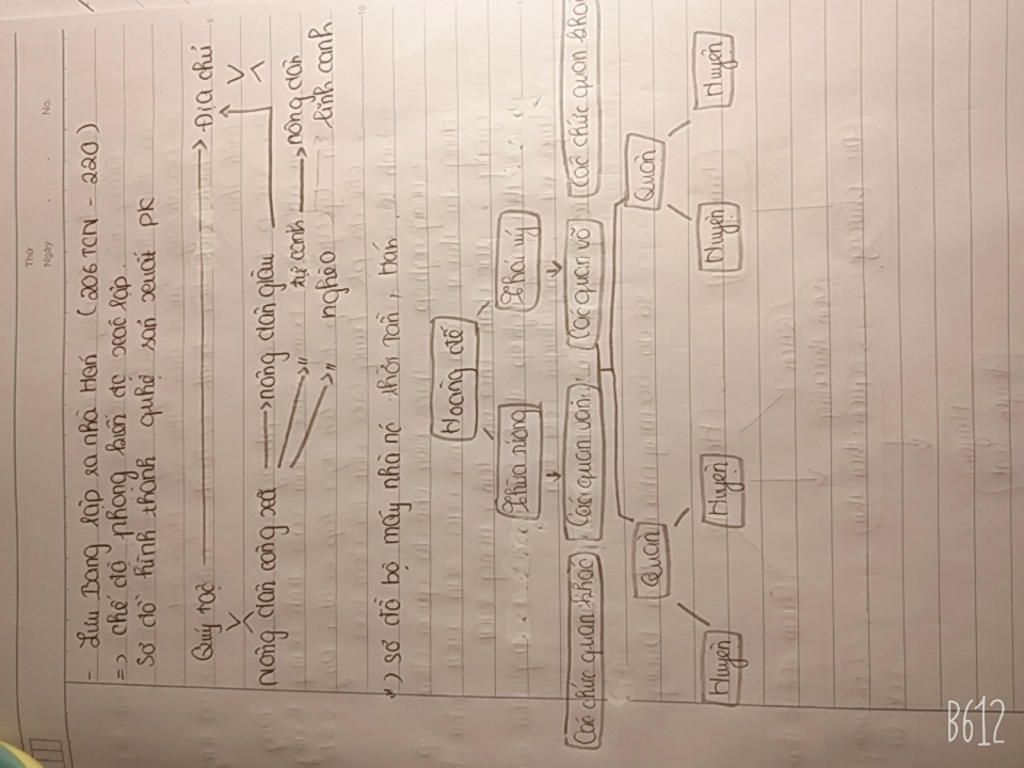 Thứ
Ngày
No.
- Lưu Bang lập ra nhà Hán (206 TCN - 220)
=> chế độ phong kiến đc xác lập
Sơ đồ hình thành quhệ sản xuất PK
Quý tộc → Địa chủ
nông dân công xã → nông dân giàu
" tự canh → nông dân
" nghèo lĩnh canh
*) sơ đồ bộ máy nhà nc thời Tần, Hán
Hoàng đế
Thừa tướng Thái uý
Các chức quan khác Các quan văn Các quan võ Các chức quan khác
Quận Quận
Huyện Huyện Huyện Huyện
B612